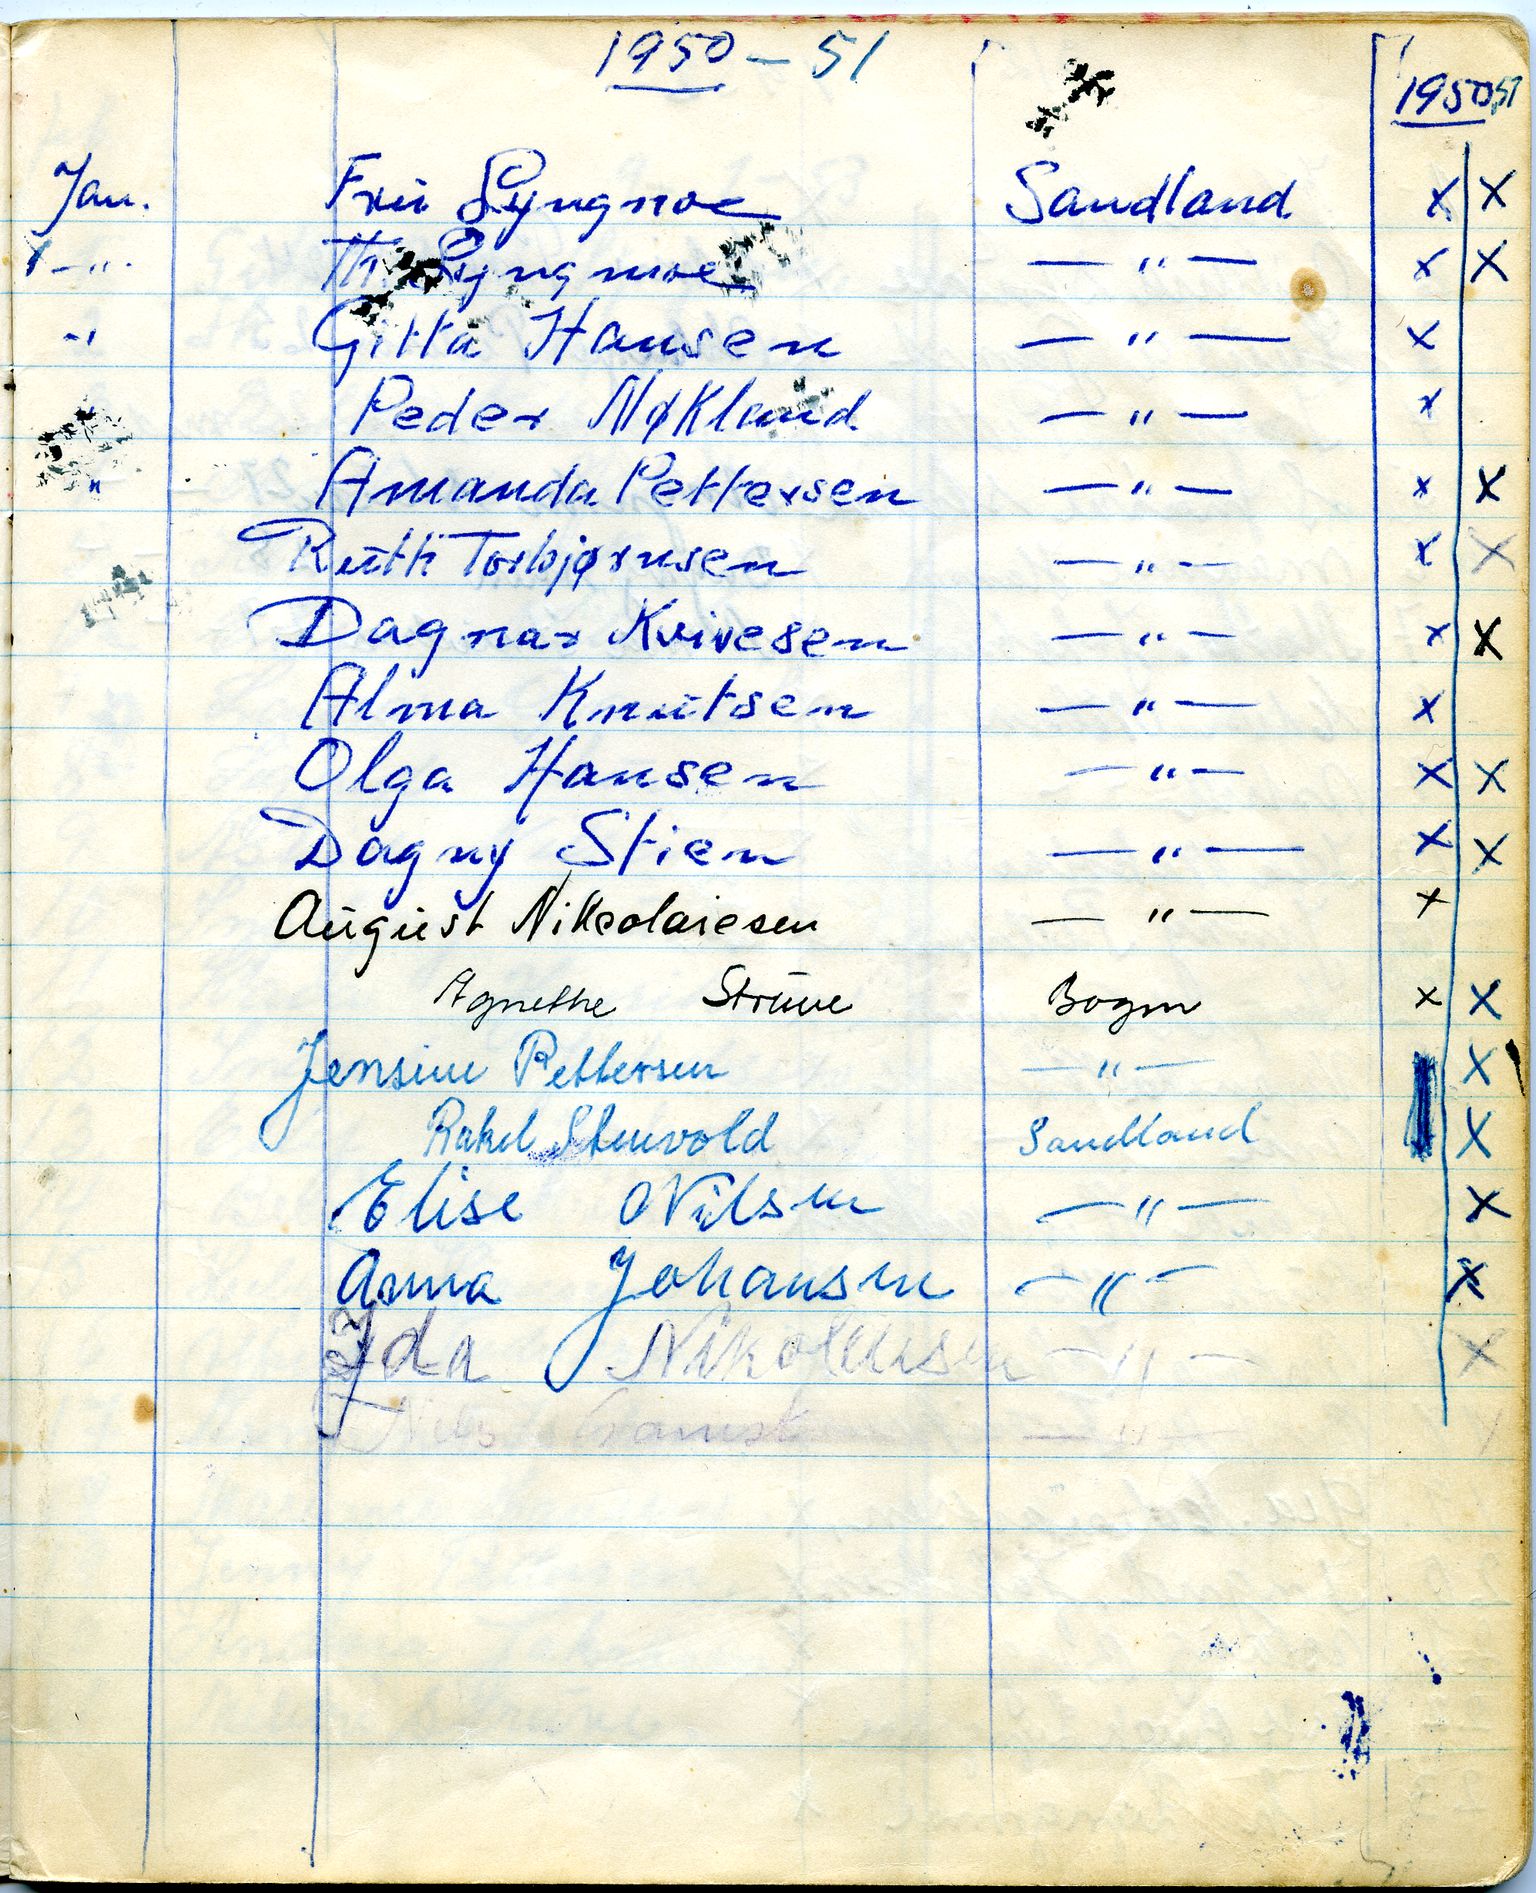 1950 – 51
1950 51
Jan. Frú Lyngmoe Sandland x x
– „ – Th. Lyngmoe — „ — x x
– „ Gitta Hansen — „ — x
Peder Nøkland — „ — x
„ Amanda Pettersen — „ — x x
Ruth Torbjørnsen — „ — x x
Dagmar Kvivesen — „ — x x
Alma Knutsen — „ — x
Olga Hansen — „ — x x
Dagny Stien — „ — x x
August Nikolaiesen — „ — x
Agnethe Strüve Bogm x x
Jensine Pettersen — „ — x
Rakel Stenvold Sandland x
Elise Nilsen — „ — x
Anna Johansen — „ — x
Ida — „ — x
Nils — „ —